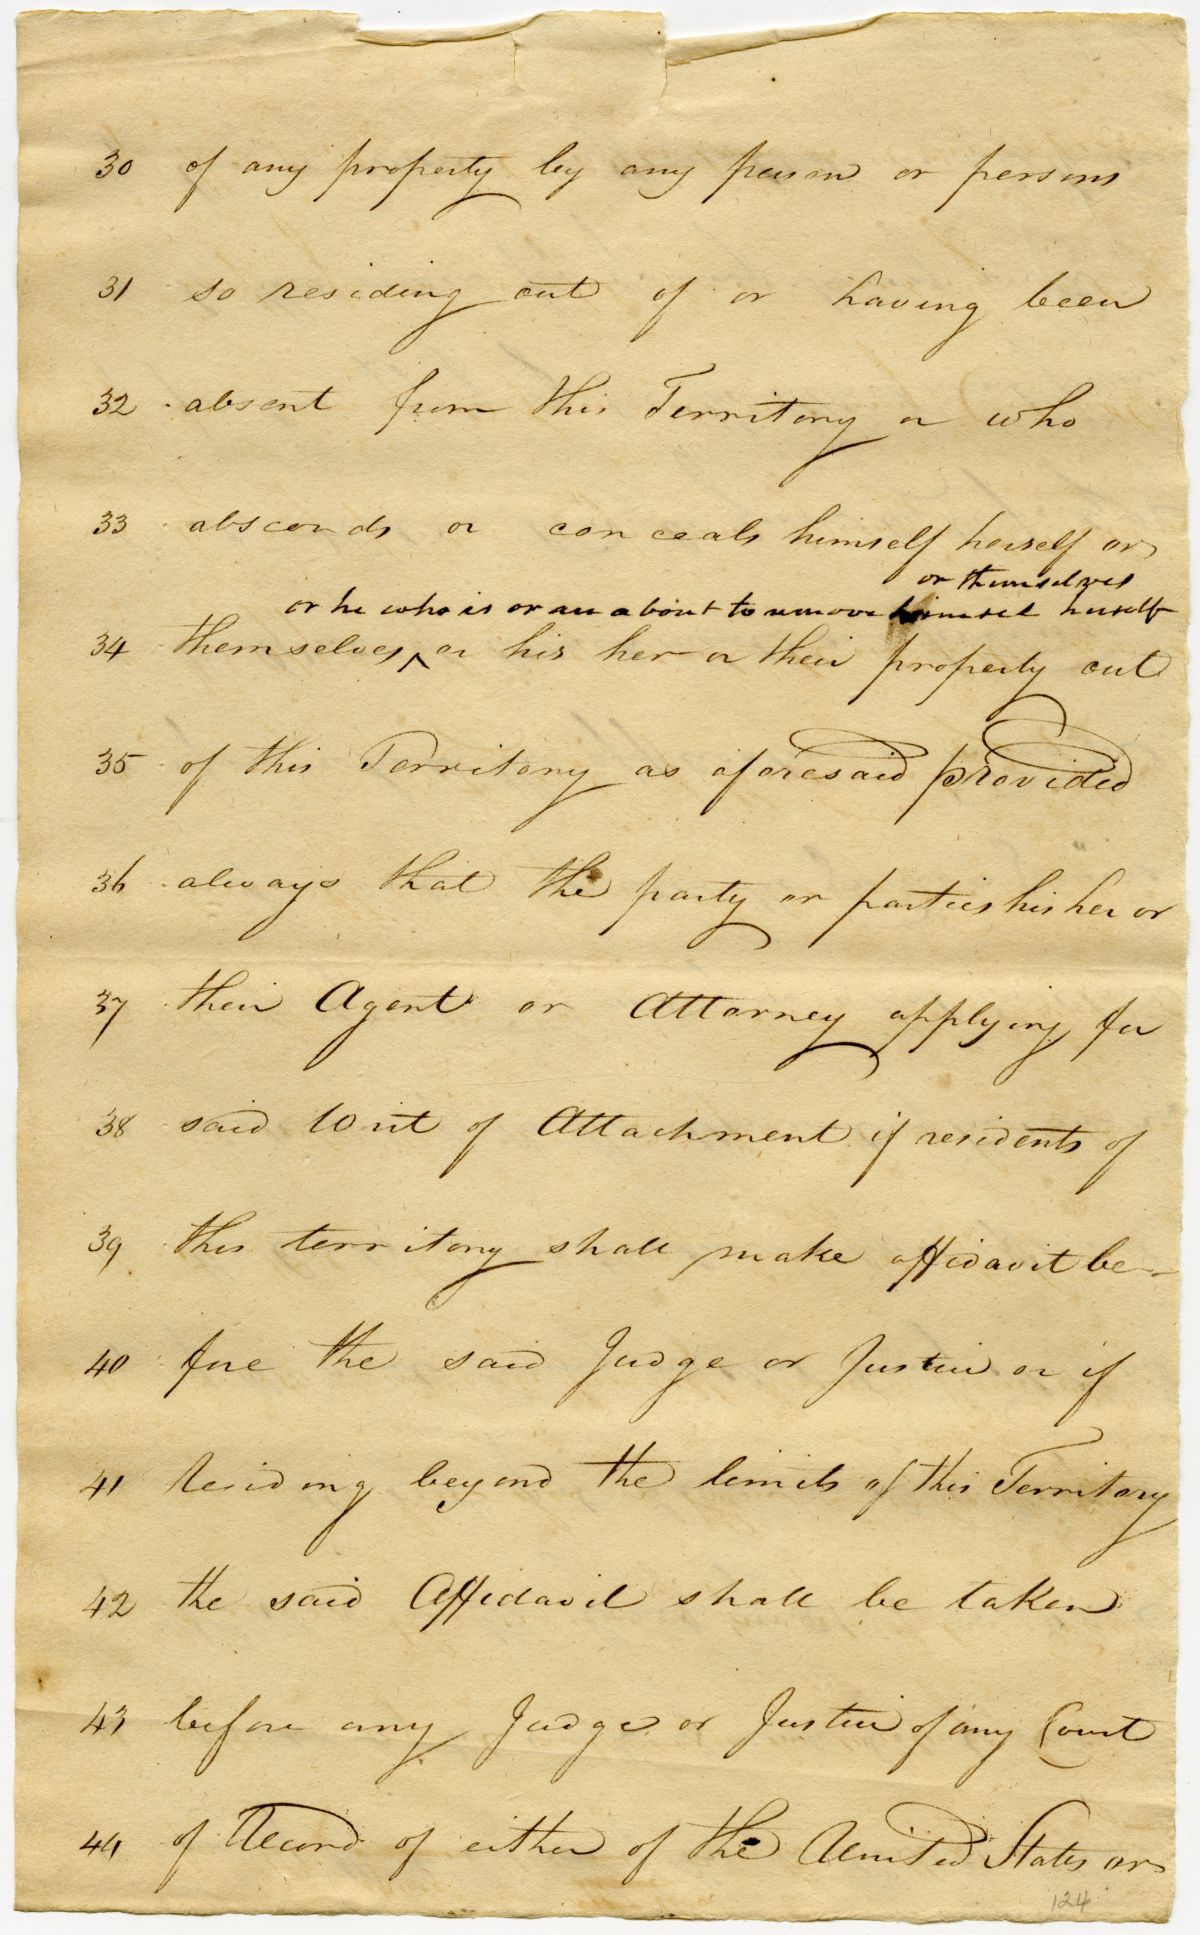 30 of any property by any person or persons
31 so residing out of or having been
32 absent from this Territory or who
33 absconds or conceals himself herself or
or themselves
or he who is or are about to remove himself herself
34 themselves ^ or his her or their property out
35 of this Territory as aforesaid provided
36 always that the party or parties his her or
37 their Agent or Attorney applying for
38 said Writ of Attachment if residents of
39 this territory shall make affidavit be-
40 fore the said Judge or Justice or if
41 Residing beyond the limits of this Territory
42 the said Affidavit shall be taken
43 before any Judge or Justice of any Court
44 of Record of either of the United States or
124